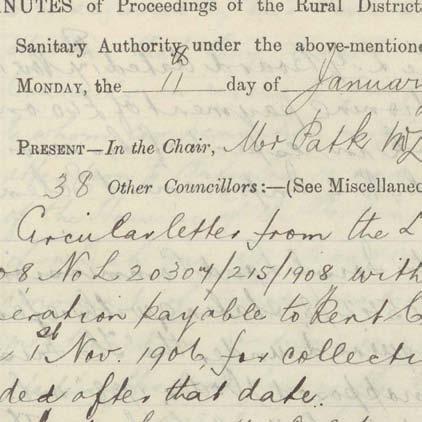 NUTES of Proceedings of the Rural District
Sanitary Authority under the above-mentione
MONDAY, the 11th day of January
PRESENT—In the Chair, Mr Patk
38 Other Councillors:—(See Miscellaneo
Circular letter from the L
08 No L 20304/215/1908, with
eration payable to Rent C
1st Nov. 1906, for collecti
ded after that date.